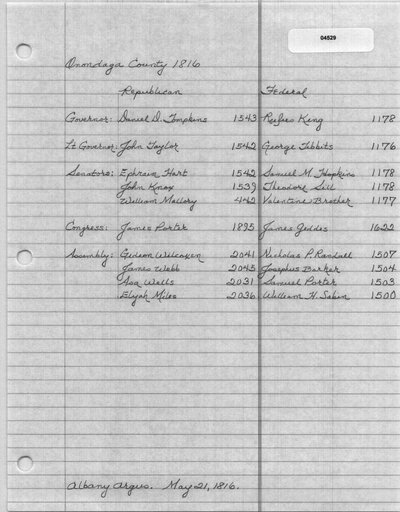 04529
Onondaga County 1816
Republican Federal
Governor: Daniel D. Tompkins 1543 Rufus King 1178
Lt Governor: John Taylor 1542 George Tibbits 1176
Senators: Ephraim Hart 1542 Samuel M. Hopkins 1178
John Knox 1539 Theodore Sill 1178
William Mallory 442 Valentine Brother 1177
Congress: James Porter 1895 James Geddes 1622
Assembly: Gideon Wilcoxen 2041 Nicholas P. Randall 1507
James Webb 2045 Josephus Barker 1504
Asa Wells 2031 Samuel Porter 1503
Elijah Miles 2036 William H. Sabin 1500
Albany Argus. May 21, 1816.